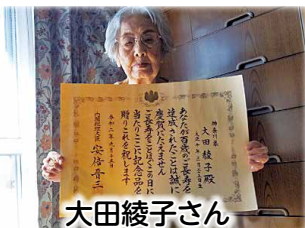 神奈川県
大田綾子殿
あなたが百歳のご長寿を
達成されたことは誠に
慶賀にたえません
ご長寿をことほぎこの日に
当たりここに記念品を
贈りこれを祝します
内閣総理大臣 安倍晋三
大田綾子さん